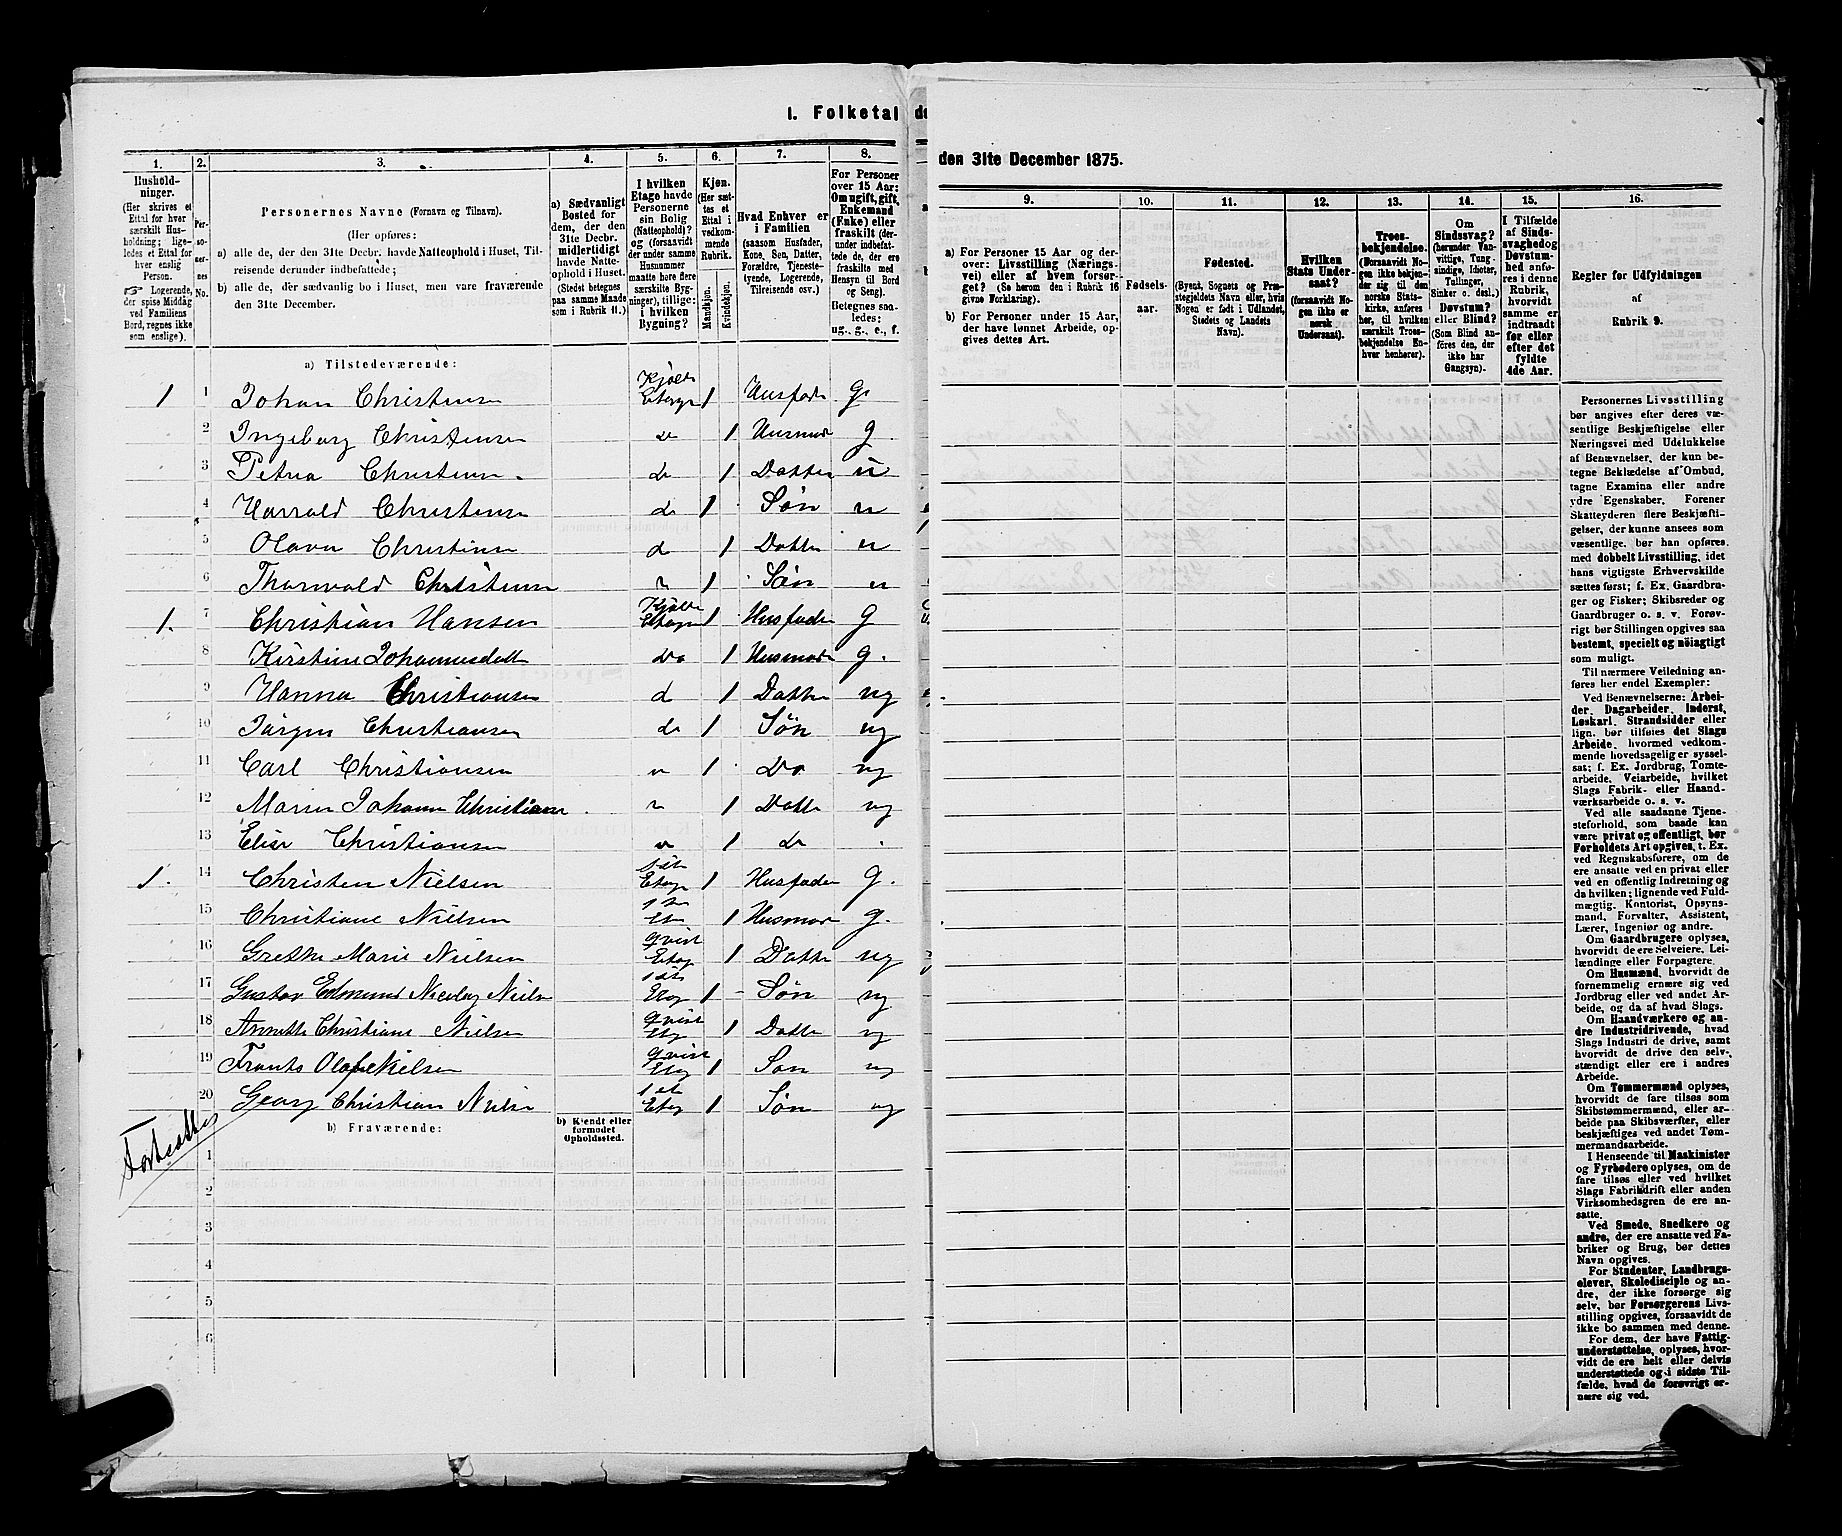 I. Folketal de
1.
2.
3.
4.
5.
6.
7.
8.
Hushold-
ninger.
(Her skrives et
Ettal for hver
særskilt Hus-
holdning; lige-
ledes et Ettal for
hver enslig
Person.
☞ Logerende,
der spise Middag
ved Familiens
Bord, regnes ikke
som enslige).
Per-
so-
ner-
nes
No.
Personernes Navne (Fornavn og Tilnavn).
(Her opføres:
a) alle de, der den 31te Decbr. havde Natteophold i Huset, Til-
reisende derunder indbefattede;
b) alle de, der sædvanlig bo i Huset, men vare fraværende
den 31te December.
a) Sædvanligt
Bosted for
dem, der den
31te Decbr.
midlertidigt
havde Natte-
ophold i Huset.
(Stedet betegnes
paa samme Maade
som i Rubrik 11.)
I hvilken
Etage havde
Personerne
sin Bolig
(Natteophold)?
og (forsaavidt
der under samme
Husnummer
maatte høre flere
særskilte Byg-
ninger), tillige:
i hvilken
Bygning?
Kjøn.
(Her sæt-
tes et
Ettal i
vedkom-
mende
Rubrik.
Mandkjøn.
Kvindekjøn.
Hvad Enhver er
i Familien
(saasom Husfader,
Kone, Søn, Datter,
Forældre, Tjeneste-
tyende, Logerende,
Tilreisende osv.)
For Personer
over 15 Aar:
Om ugift, gift,
Enkemand
(Enke) eller
fraskilt (der-
under indbefat-
tede de, der ere
fraskilte med
Hensyn til Bord
og Seng).
Betegnes saa-
ledes:
ug., g., e., f.
a) Tilstedeværende:
1 1 Johan Christensen Kjøller Etagen 1 Husfader g.
2 Ingeborg Christensen do 1 Husmor g.
3 Petria Christensen do 1 Datter u
4 Harrald Christensen do 1 Søn u
5 Olava Christensen do 1 Datter u
6 Thorvald Christensen " 1 Søn u
1. 7 Christian Hansen Kjøller Etagen 1 Husfader g
8 Kirstine Johannesdatter do 1 Husmoder g.
9 Hanna Christiansen do 1 Datter ug
10 Jørgen Christiansen do 1 Søn ug
11 Carl Christiansen " 1 Do ug
12 Maren Johanne Christiansen " 1 Datter ug
13 Elise Christiansen " 1 do
1. 14 Christen Nielsen 1ste Etage 1 Husfader g.
15 Christiane Nielsen 1ste Et 1 Husmoder g.
16 Grethe Marie Nielsen Qvist Etag 1 Datter ug
17 Gustav Edmund Nicolay Nielsen 1ste Etag 1 Søn ug
18 Annette Christiane Nielsen Qvist Etg 1 Datter ug
19 Frants Olaf Nielsen Qvist Etg 1 Søn ug
20 Georg Christian Nielsen 1ste Etag 1 Søn ug
Fortsættes
b) Fraværende:
b) Kjendt eller
formodet
Opholdssted.
1
2
3
4
5
6
den 31te December 1875.
9.
10.
11.
12.
13.
14.
15.
16.
a) For Personer 15 Aar og der-
over: Livsstilling (Nærings-
vei) eller af hvem forsør-
get? (Se herom den i Rubrik 16
givne Forklaring).
b) For Personer under 15 Aar,
der have lønnet Arbeide, op-
gives dettes Art.
Fødsels-
aar.
Fødested.
(Byens, Sognets og Præ-
stegjeldets Navn eller, hvis
Nogen er født i Udlandet,
Stedets og Landets
Navn).
Hvilken
Stats Under-
saat?
(forsaavidt No-
gen ikke er
norsk
Undersaat).
Troes-
bekjendelse.
(Forsaavidt No-
gen ikke bekjen-
der sig til den
norske Stats-
kirke, anføres
her, til hvilken
særskilt Troes-
bekjendelse En-
hver henhører).
Om
Sindssvag?
(herunder Van-
vittige, Tung-
sindige, Idioter,
Tullinger,
Sinker o. desl.)
Døvstum?
eller Blind?
(Som Blind an-
føres den, der
ikke har
Gangsyn).
I Tilfælde
af Sinds-
svaghed og
Døvstum-
hed anfø-
res i denne
Rubrik,
hvorvidt
samme er
indtraadt
før eller
efter det
fyldte
4de Aar.
Regler for Udfyldningen
af
Rubrik 9.
Personernes Livsstilling
bør angives efter deres væ-
sentlige Beskjæftigelse eller
Næringsvei med Udelukkelse
af Benævnelser, der kun be-
tegne Beklædelse af Ombud,
tagne Examina eller andre
ydre Egenskaber. Forener
Skatteyderen flere Beskjæfti-
gelser, der kunne ansees som
væsentlige, bør han opføres
med dobbelt Livsstilling, idet
hans vigtigste Erhvervskilde
sættes først; f. Ex. Gaardbru-
ger og Fisker; Skibsreder og
Gaardbruger o. s. v. Forøv-
rigt bør Stillingen opgives saa
bestemt, specielt og nøiagtigt
som muligt.
Til nærmere Veiledning an-
føres her endel Exempler:
Ved Benævnelserne: Arbei-
der, Dagarbeider, Inderst,
Løskarl, Strandsidder eller
lign. bør tilføies det Slags
Arbeide, hvormed vedkom-
mende hovedsagelig er syssel-
sat; f. Ex. Jordbrug, Tomte-
arbeide, Veiarbeide, hvilket
Slags Fabrik- eller Haand-
værksarbeide o. s. v.
Ved alle saadanne Tjene-
steforhold, som baade kan
være privat og offentligt, bør
Forholdets Art opgives, t. Ex.
ved Regnskabsførere, om de
ere ansatte ved en privat eller
ved en offentlig Indretning og
da hvilken; lignende ved Fuld-
mægtig, Kontorist, Opsyns-
mand, Forvalter, Assistent,
Lærer, Ingeniør og andre.
Om Gaardbrugere oplyses,
hvorvidt de ere Selveiere, Lei-
lændinge eller Forpagtere.
Om Husmænd, hvorvidt de
fornemmelig ernære sig ved
Jordbrug eller ved andet Ar-
beide, og da af hvad Slags.
Om Haandværkere og an-
dre Industridrivende, hvad
Slags Industri de drive, samt
hvorvidt de drive den selv-
stændigt eller ere i andres
Arbeide.
Om Tømmermænd oplyses,
hvorvidt de fare tilsøs som
Skibstømmermænd, eller ar-
beide paa Skibsværfter, eller
beskjæftiges ved andet Tøm-
mermandsarbeide.
I Henseende til Maskinister
og Fyrbødere oplyses, om de
fare tilsøs eller ved hvilket
Slags Fabrikdrift eller anden
Virksomhedsgren de ere an-
satte.
Ved Smede, Snedkere og
andre, der ere ansatte ved Fa-
briker og Brug, bør dettes
Navn opgives.
For Studenter, Landbrugs-
elever, Skoledisciple og an-
dre, der ikke forsørge sig
selv, bør Forsørgerens Livs-
stilling opgives, forsaavidt de
ikke bo sammen med denne.
For dem, der have Fattig-
understøttelse, oplyses, hvor-
vidt de ere helt eller delvis
understøttede og i sidste Til-
fælde, hvad de forøvrigt er-
nære sig ved.